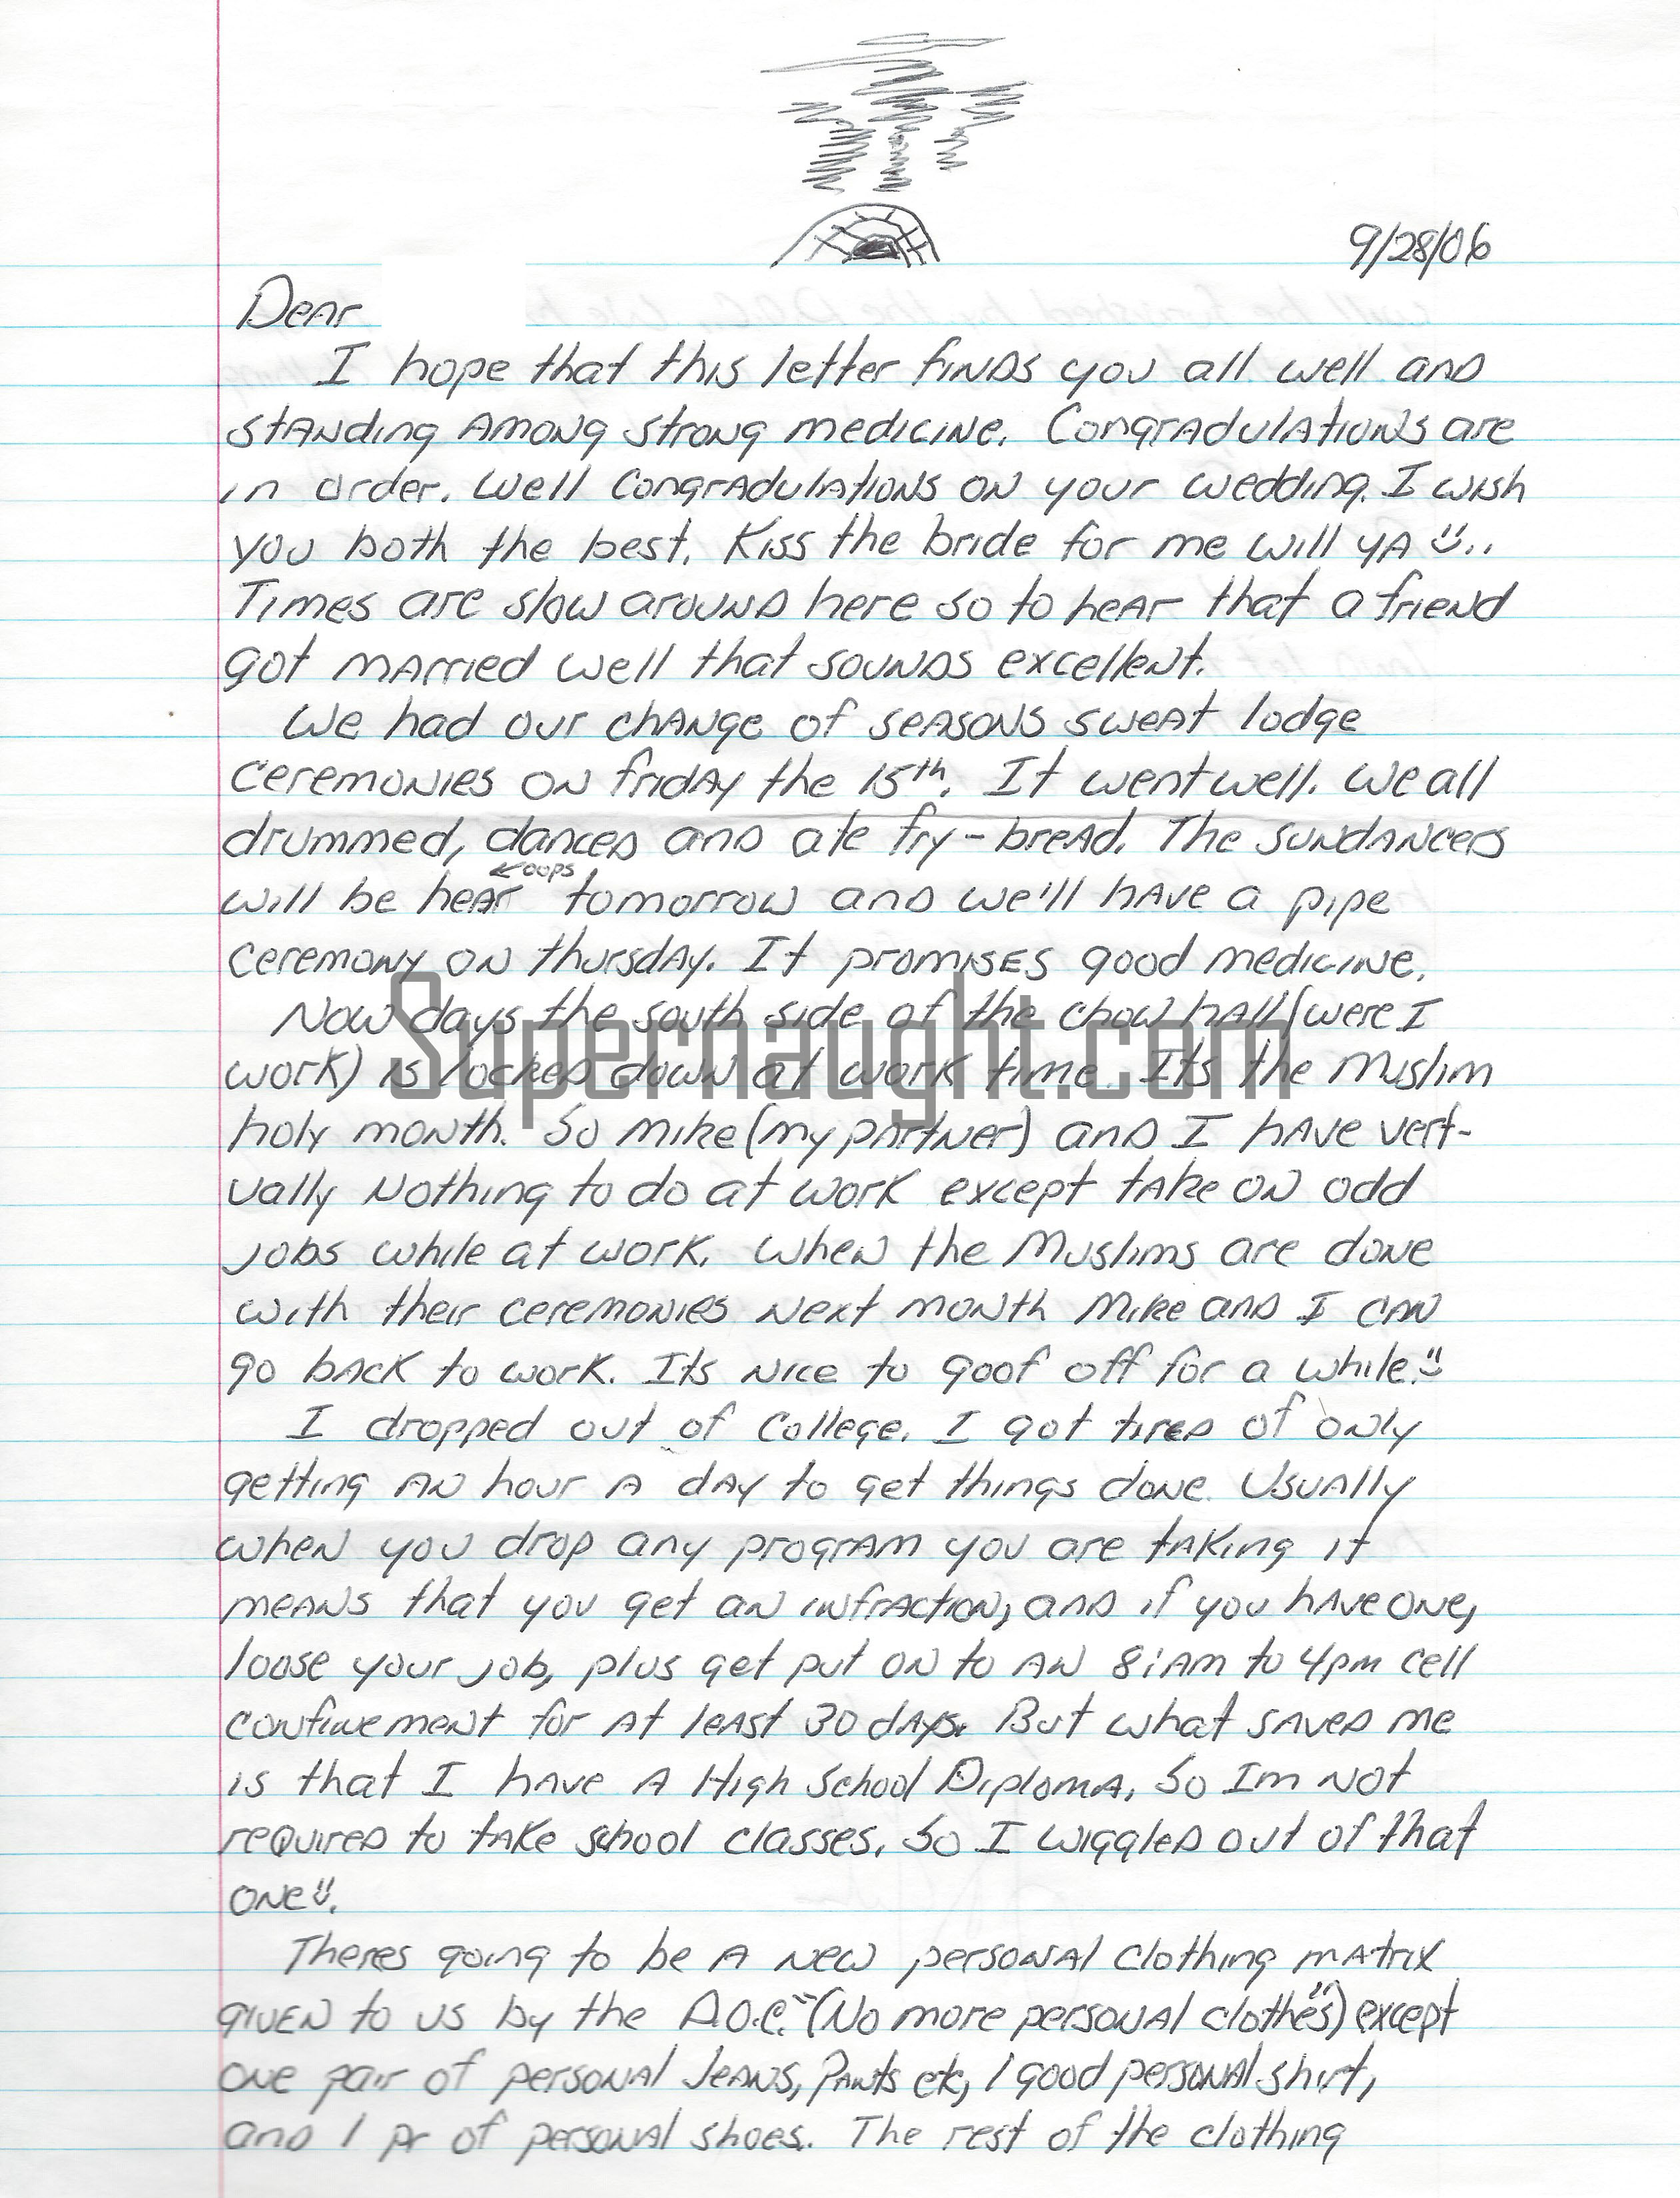 9/28/06
Dear
I hope that this letter finds you all well and
standing among strong medicine. Congradulations are
in order. Well Congradulations on your wedding. I wish
you both the best. Kiss the bride for me will ya ü..
Times are slow around here so to hear that a friend
got married well that sounds excellent.
We had our change of seasons sweat lodge
ceremonies on friday the 15th. It went well. We all
drummed, dances and ate fry-bread. The sundancers
←oops
will be hear tomorrow and we'll have a pipe
ceremony on thursday. It promises good medicine.
Now days the south side of the chow hall (were I
Supernaught.com
work) is locked down at work time. Its the Muslim
holy month. So Mike (my partner) and I have vert-
ually nothing to do at work except take on odd
jobs while at work. When the Muslims are done
with their ceremonies next month Mike and I can
go back to work. Its nice to goof off for a while.ü
I dropped out of College. I got tired of only
getting an hour a day to get things done. Usually
when you drop any program you are taking it
means that you get an infraction, and if you have one,
loose your job, plus get put on to an 8:am to 4pm cell
confinement for at least 30 days. But what saved me
is that I have a High School Diploma. So Im not
required to take school classes. So I wiggled out of that
one ü.
Theres going to be a new personal clothing matrix
given to us by the D.O.C. "(No more personal clothes") except
one pair of personal Jeans, Pants etc, 1 good personal shirt,
and 1 pr of personal shoes. The rest of the clothing